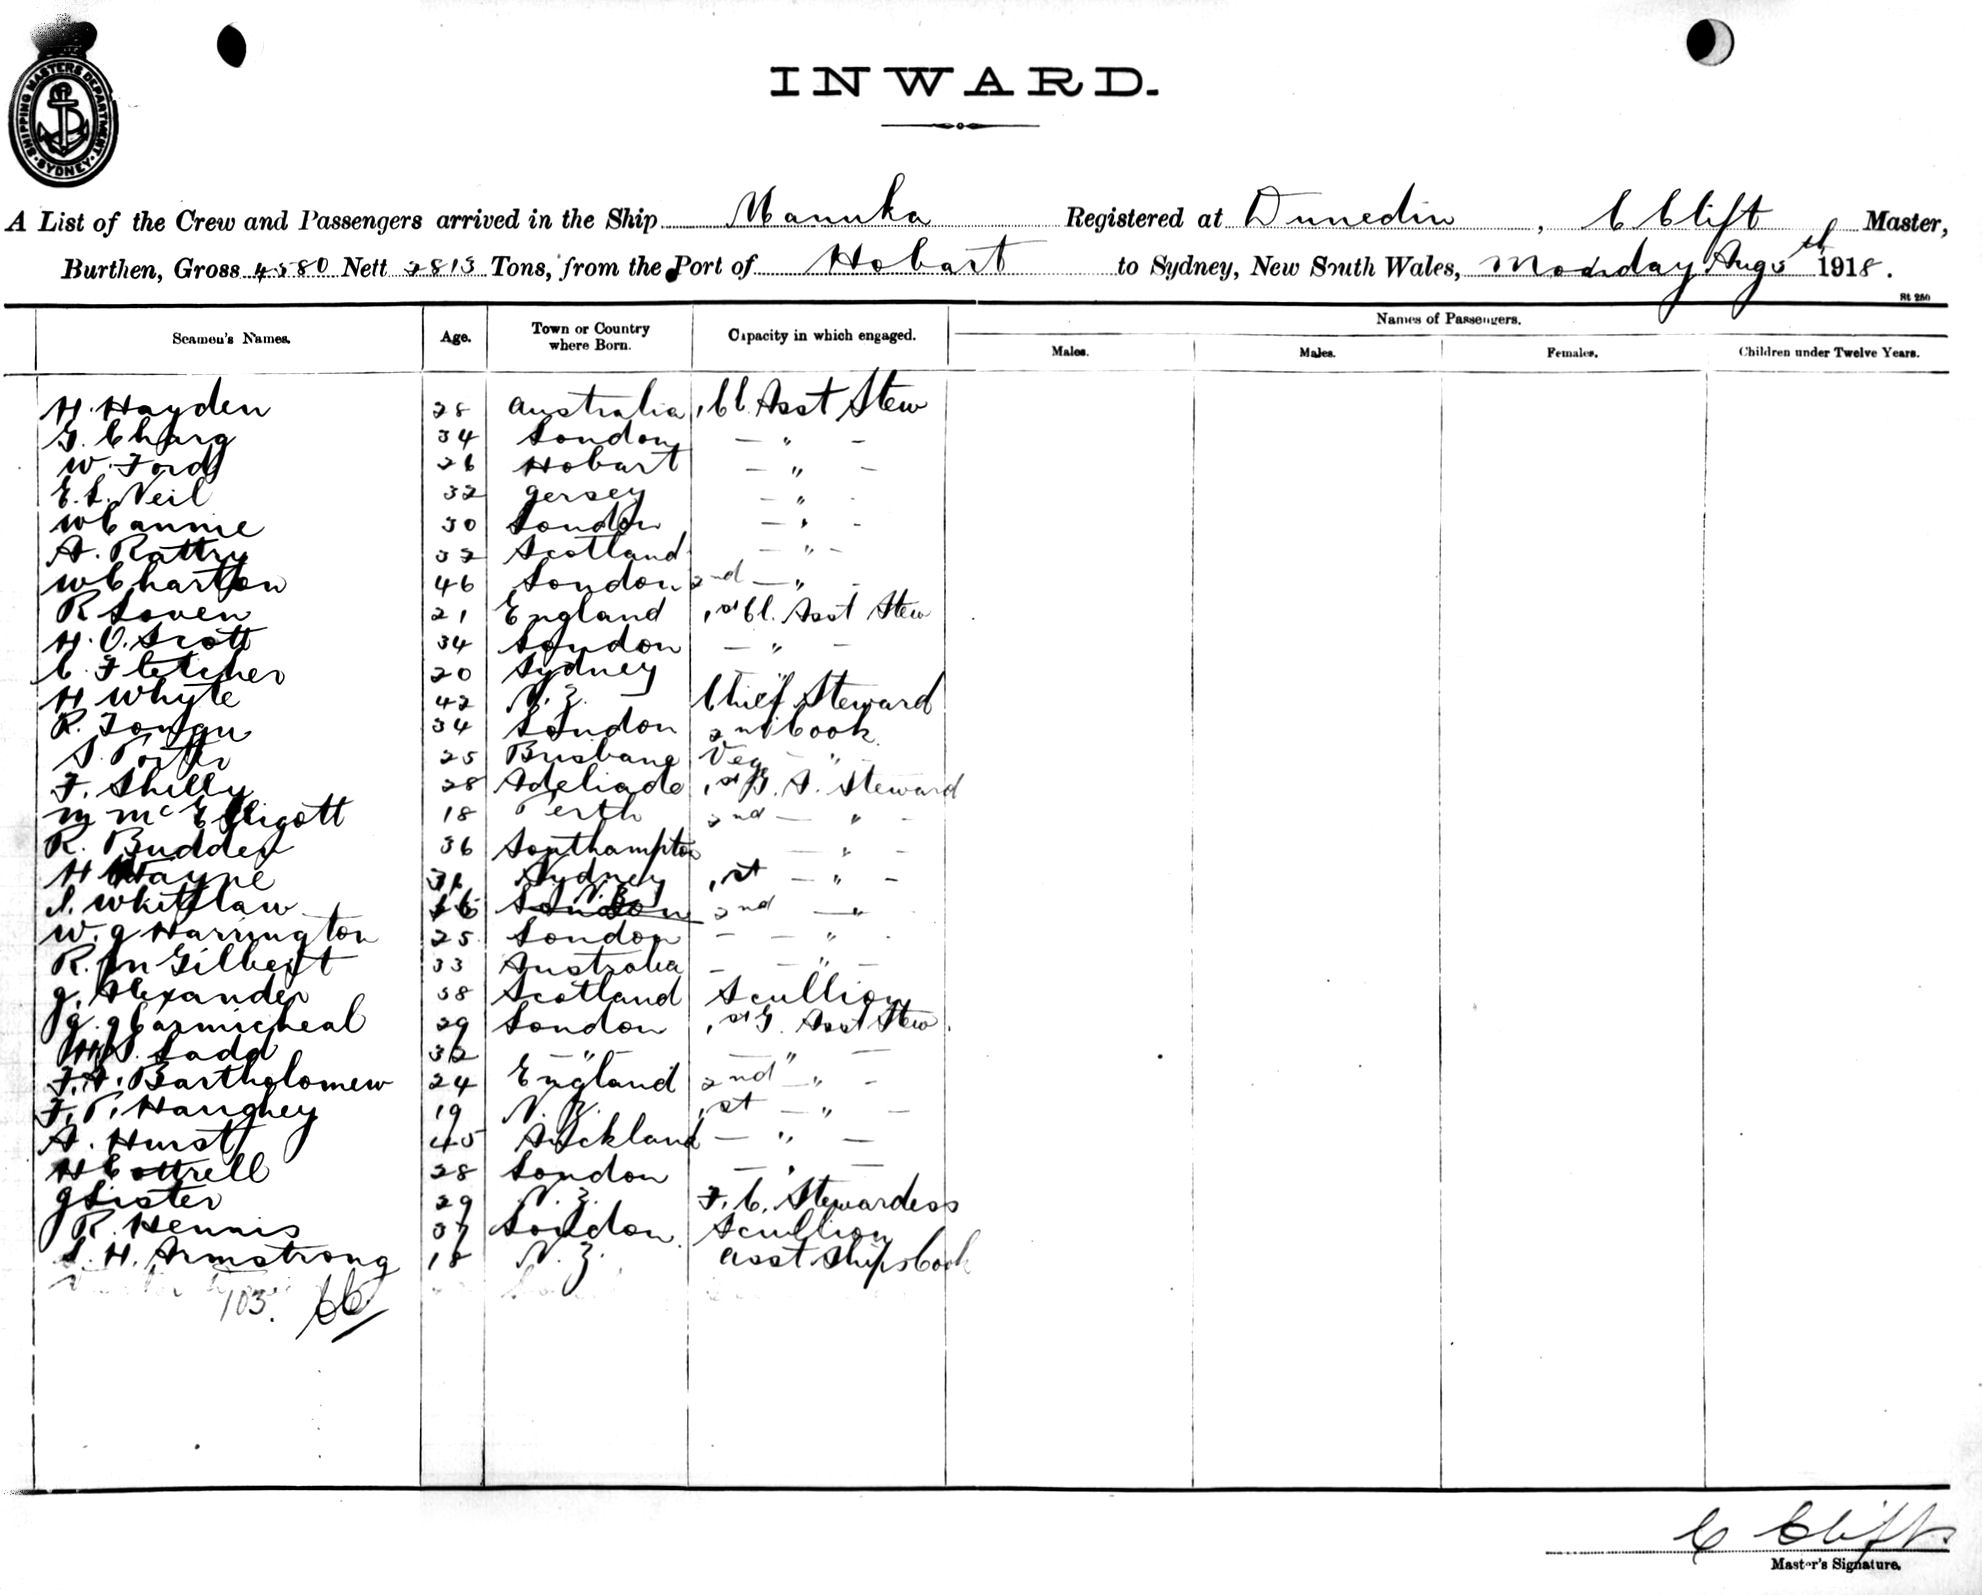 SHIPPING MASTERS DEPARTMENT · SYDNEY ·
INWARD.
A List of the Crew and Passengers arrived in the Ship Manuka Registered at Dunedin, C Clift Master,
Burthen, Gross 4580 Nett 2813 Tons, from the Port of Hobart to Sydney, New South Wales, Monday Aug 5th 1918.
St 250
Seamen's Names. Age. Town or Country where Born. Capacity in which engaged. Names of Passengers.
Males. Males. Females. Children under Twelve Years.
H. Hayden 28 Australia 1 Cl. Asst Stew
G. Charg 34 London — " —
W. Ford 26 Hobart — " —
E. L. Neil 32 Jersey — "
W Cannie 30 London — " —
A. Rattry 32 Scotland — " —
W Charlton 46 London 2nd — " —
R Loven 21 England 1st Cl. Asst Stew
H. O. Scott 34 London — " —
C. Fletcher 20 Sydney "
H Whyte 42 N. Z. Chief Steward
R. 34 London 2nd Cook
S. 25 Brisbane Veg "
F. Shelly 28 Adeliade 1st G. S. Steward
M McElligott 18 Perth 2nd — " —
R. Budden 36 Southampton — " —
H Wayne Sydney 1st — " —
S. Whitelaw N. Z. 2nd — "
W. J Harrington 25 London — "
R. M Gilbert 33 Australia — — " —
J. Alexander 38 Scotland Scullion
J. J Carmicheal 29 London 1st G. Asst Stew.
Ladd 32 — " — — " —
F. A. Bartholomew 24 England 2nd — " —
F. P. Haughey 19 N. Z. 1st — " —
A. Hurst 45 Auckland — " —
H Cottrell 28 London — " —
J Lister 29 N. Z. F. C. Stewardess
R. Hennis 37 London. Scullion
S. H. Armstrong 18 N. Z. Asst Ships Cook
103. CC
C Clift
Master's Signature.